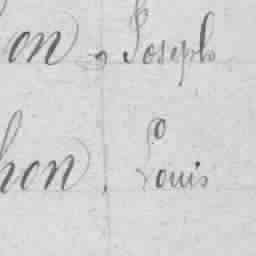 on, Joseph
hon, Louis